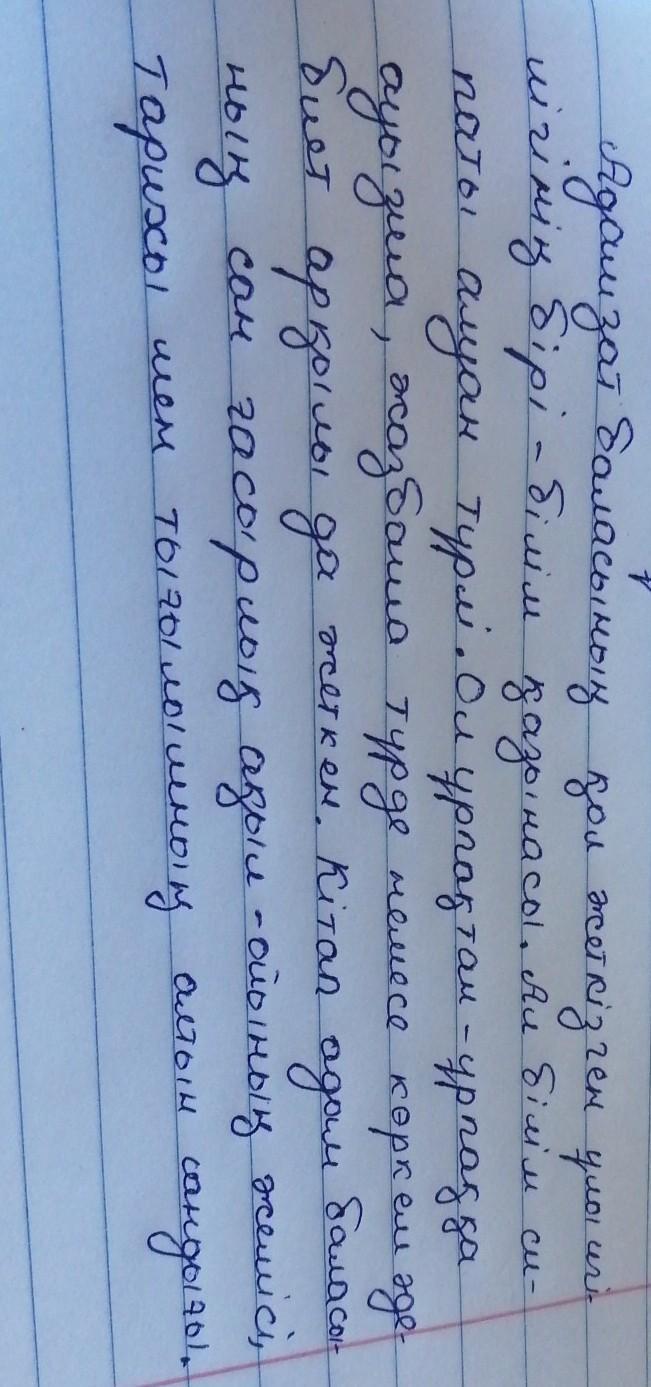 Адамзат баласының қол жеткізген ұлы игі-
лігінің бірі - білім қазынасы. Ал білім си-
паты алуан түрлі. Ол ұрпақтан-ұрпаққа
ауызша, жазбаша түрде немесе көркем әде-
биет арқылы да жеткен. Кітап адам баласы-
ның сан ғасырлық ақыл-ойының жемісі,
Тарихы мен тығылымның алтын сандығы.